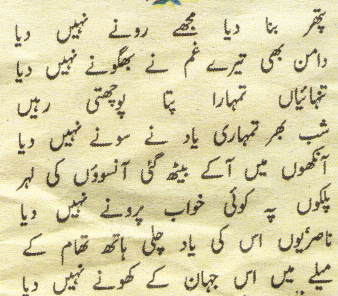 پتھر بنا دیا مجھے رونے نہیں دیا
دامن بھی تیرے غم نے بھگونے نہیں دیا
تنہائیاں تمہارا پتا پوچھتی رہیں
شب بھر تمہاری یاد نے سونے نہیں دیا
آنکھوں میں آکے بیٹھ گئی آنسوؤں کی لہر
پلکوں پہ کوئی خواب پرونے نہیں دیا
ناصرؔ یوں اس کی یاد چلی ہاتھ تھام کے
میلے میں اس جہان کے کھونے نہیں دیا